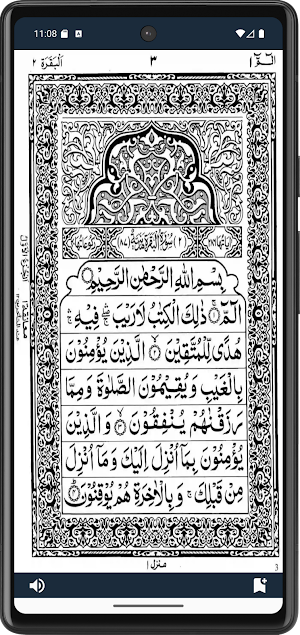 11:08
الٓمّٓ ١ ٣ اَلْبَقَرَة ٢
سُوْرَةُ الْبَقَرَةِ
بِسْمِ اللّٰهِ الرَّحْمٰنِ الرَّحِیْمِ
الٓمّٓ ۝ ذٰلِكَ الْكِتٰبُ لَا رَیْبَ ۛ فِیْهِ ۛ
هُدًی لِّلْمُتَّقِیْنَ ۝ الَّذِیْنَ یُؤْمِنُوْنَ
بِالْغَیْبِ وَیُقِیْمُوْنَ الصَّلٰوةَ وَمِمَّا
رَزَقْنٰهُمْ یُنْفِقُوْنَ ۝ وَالَّذِیْنَ
یُؤْمِنُوْنَ بِمَاۤ اُنْزِلَ اِلَیْكَ وَمَاۤ اُنْزِلَ
مِنْ قَبْلِكَ ۚ وَبِالْاٰخِرَةِ هُمْ یُوْقِنُوْنَ ۝
منزل ١
3